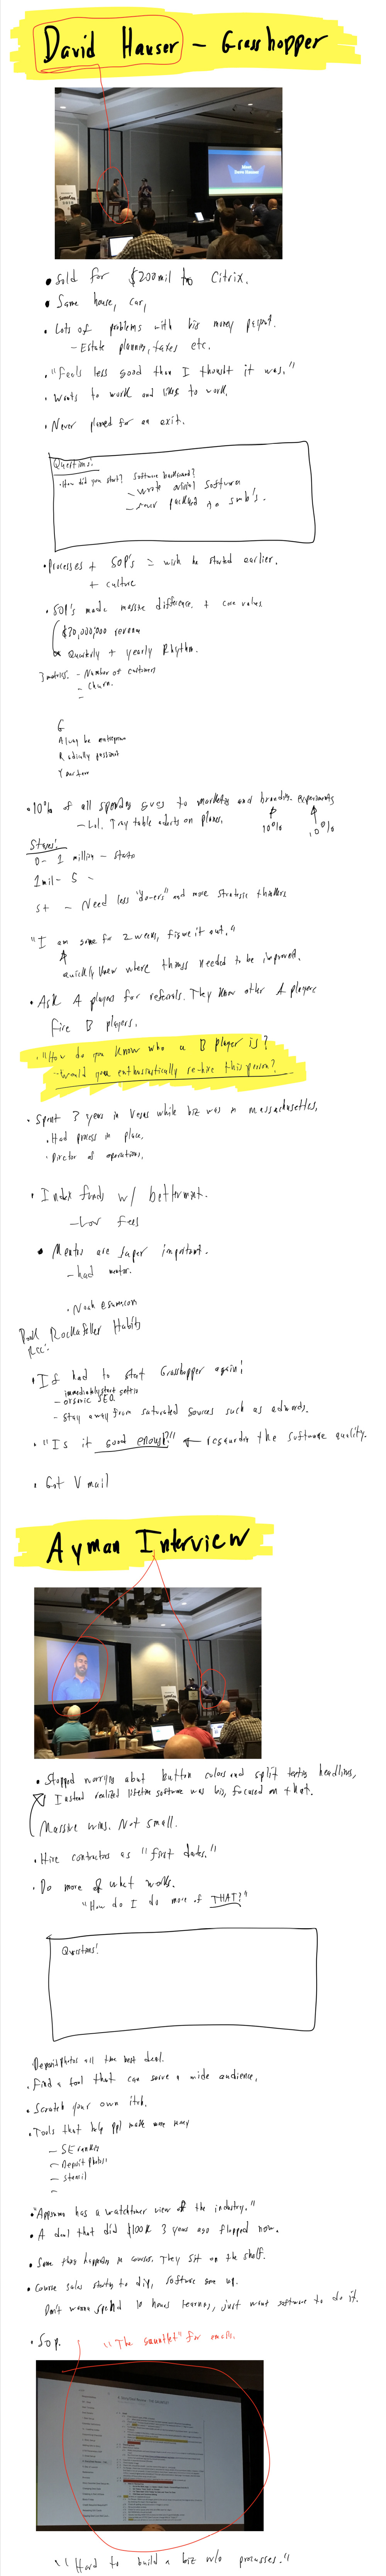 David Hauser - Grasshopper
Meet
David Hauser
• Sold for $200mil to Citrix.
• Same house, car,
• Lots of problems with his money
- Estate planning, taxes etc.
• "Feels less good than I thought it was."
• Wants to work and likes to work.
• Never planned for an exit.
Questions:
• How did you start? Software background?
- wrote software
- never packaged
• Processes + SOP's = wish he started earlier.
+ culture
• SOP's made massive difference. + core values
$30,000,000 revenue
Quarterly + yearly Rhythm.
3 metrics. - Number of customers
- Churn.
-
G
Always be entrepreneur
Radically passionate
Your team
• 10% of all spending goes to marketing and branding experiments
- Lol. Tray table adverts on planes.
10%
10%
Stages:
0 - 1 million -
1mil - 5 -
5+ - Need less "doers" and more strategic thinkers
"I am gone for 2 weeks, figure it out."
quickly knew where things needed to be improved.
• Ask A players for referrals. They know other A players
Fire B players.
• "How do you know who a B player is?
- Would you enthusiastically re-hire this person?
• Spent 3 years in Vegas while biz was in Massachusetts.
• Had process in place.
• Director of operations.
• Index funds w/ betterment.
- Low fees
• Mentors are super important.
- had mentor.
• Noah
Rockafeller Habits
• If had to start Grasshopper again:
immediately start
- organic SEO.
- Stay away from saturated sources such as adwords.
• "Is it good enough?" ← regarding the software quality.
• Got Vmail
Ayman Interview
• Stopped worrying about button colors and split testing headlines,
Instead realized lifetime software was big, focused on that.
Massive wins. Not small.
• Hire contractors as "first dates."
• Do more of what works.
"How do I do more of THAT?"
Questions:
Depositphotos all time best deal.
• Find a tool that can serve a wide audience.
• Scratch your own itch.
• Tools that help ppl make more money
- SE ranking
- Deposit photos
- Stencil
-
• "Appsumo has a watchtower view of the industry."
• A deal that did $100k 3 years ago flopped now.
• Same thing happens in courses. They sit on the shelf.
• Course sales starting to dip, software gone up.
Don't wanna spend 10 hours learning, just want software to do it.
• Sop.
"The gauntlet" for emails.
"Hard to build a biz w/o processes."